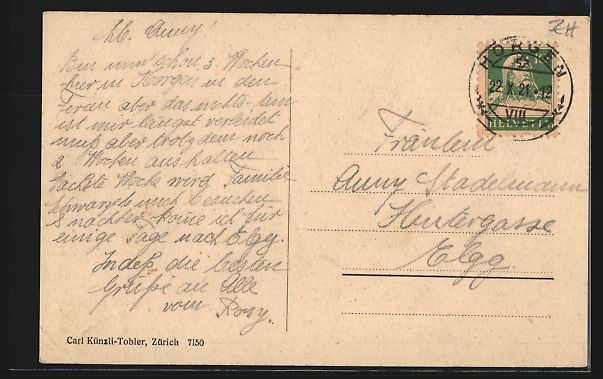 Lb. Anny!
Bin nun schon 3 Wochen
hier in Horgen in den
Ferien aber das
ist mir längst verleidet
muß aber trotzdem noch
2 Wochen aushalten
Nächste Woche wird Familie
mich besuchen
& nachher kome ich für
einige Tage nach Elgg.
Indeß die besten
Grüße an Alle
vom Rosy.
Carl Künzli-Tobler, Zürich 7150
ZH
HORGEN
22.X.21.-12
VIII
HELVETIA
Fräulein
Anny Stadelmann
Hintergasse
Elgg